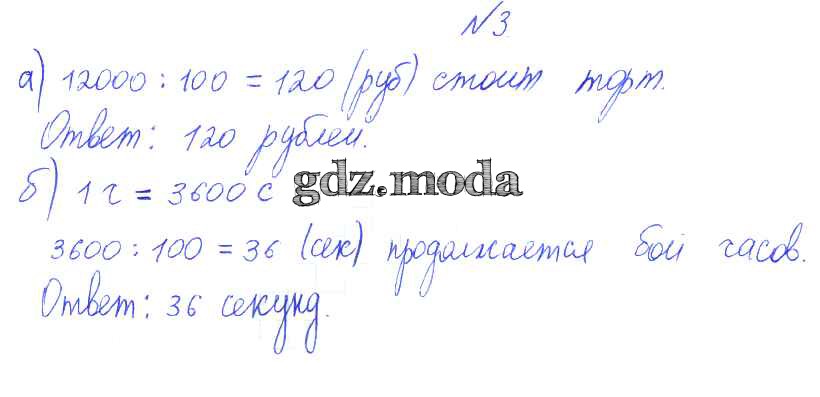 №3
а) 12000 : 100 = 120 (руб) стоит торт.
Ответ: 120 рублей.
б) 1 ч = 3600 с gdz.moda
3600 : 100 = 36 (сек) продолжается бой часов.
Ответ: 36 секунд.